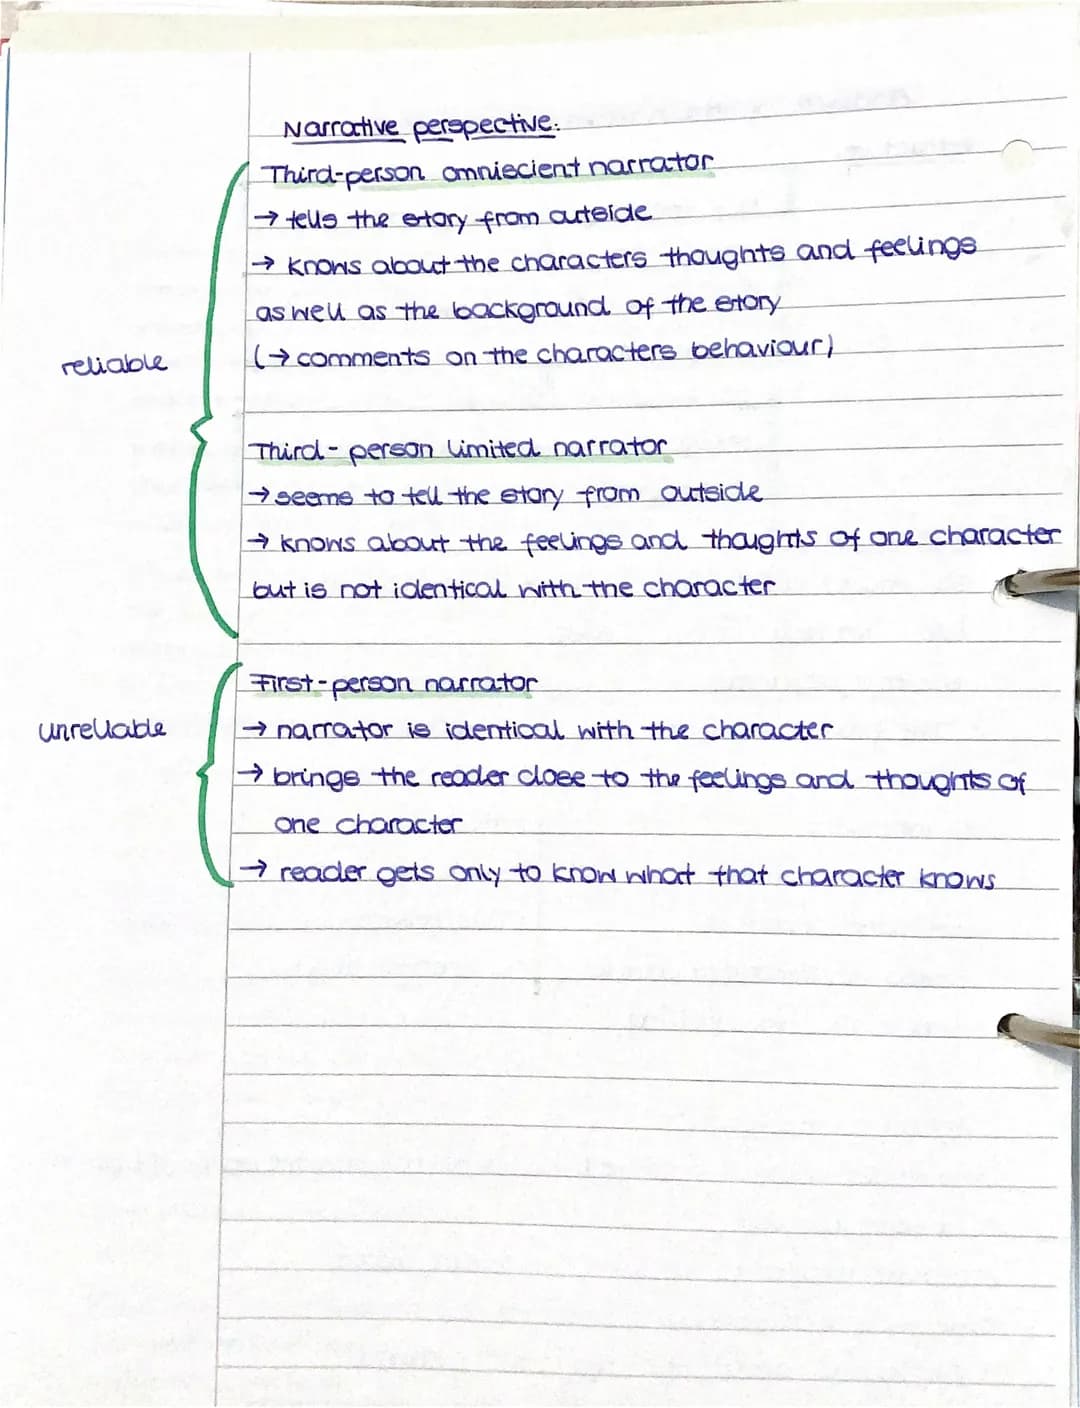 Narrative perspective:
Third-person omniscient narrator
→ tells the story from outside
→ knows about the characters thoughts and feelings
as well as the background of the story
(→ comments on the characters behaviour)
reliable
Third-person limited narrator
→ seems to tell the story from outside
→ knows about the feelings and thoughts of one character
but is not identical with the character
First-person narrator
unreliable
→ narrator is identical with the character
→ brings the reader close to the feelings and thoughts of
one character
→ reader gets only to know what that character knows